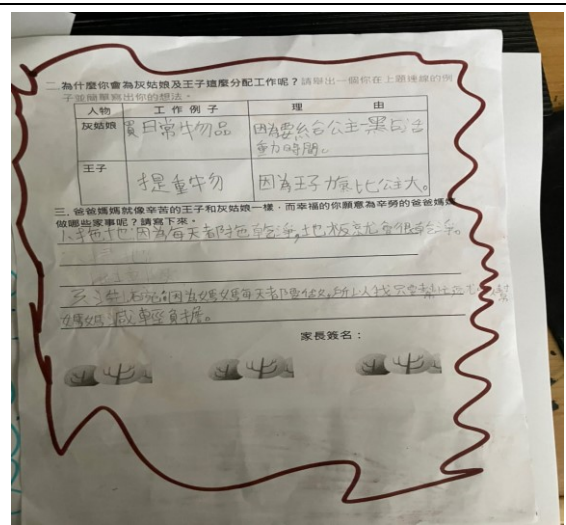 二、為什麼你會為灰姑娘及王子這麼分配工作呢？請舉出一個你在上題連線的例
子並簡單寫出你的想法。
人物 工作例子 理由
灰姑娘 買日常生物品 因為要給公主一點活
動時間。
王子 提重物 因為王子力氣比公主大。
三、爸爸媽媽就像辛苦的王子和灰姑娘一樣，而幸福的你願意為辛勞的爸爸媽媽
做哪些家事呢？請寫下來。
1.拖地因為每天都拖乾淨,地板就會很乾淨。
2.洗碗因為媽媽每天都要做,所以我
媽媽減輕負擔。
家長簽名：